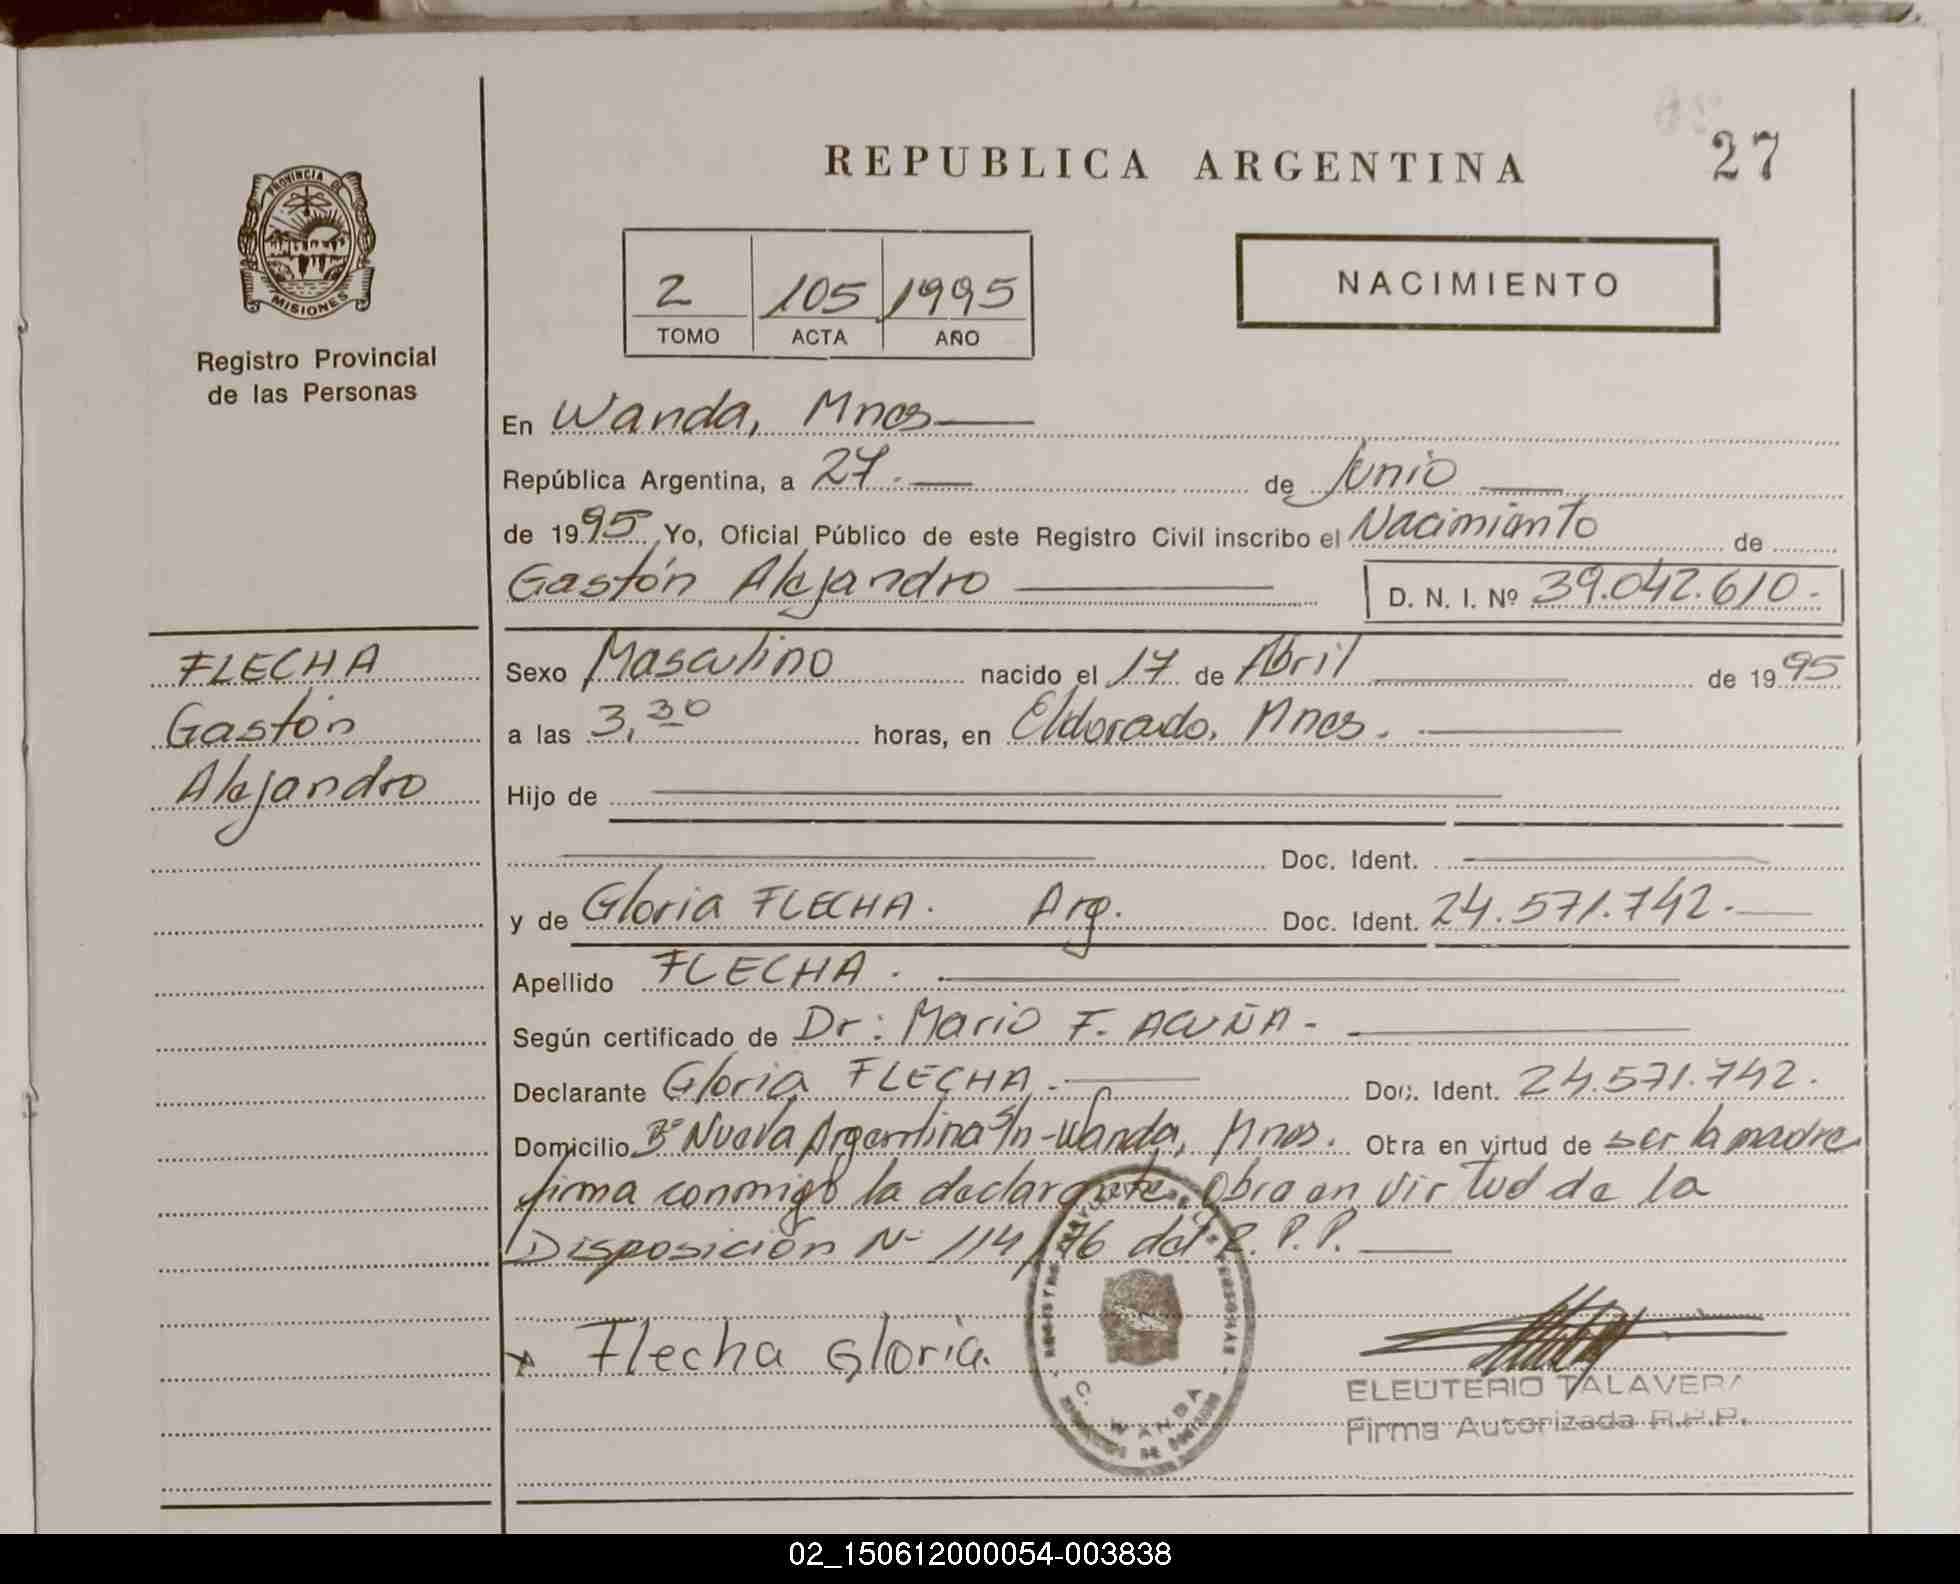 REPUBLICA ARGENTINA
27
PROVINCIA DE
MISIONES
Registro Provincial
de las Personas
2 105 1995
TOMO ACTA AÑO
NACIMIENTO
En Wanda, Mnes
República Argentina, a 27.- de Junio
de 1995 Yo, Oficial Público de este Registro Civil inscribo el Nacimiento de
Gastón Alejandro D. N. I. Nº 39.042.610.-
FLECHA
Gastón
Alejandro
Sexo Masculino nacido el 17 de Abril de 1995
a las 3,30 horas, en Eldorado, Mnes.
Hijo de
Doc. Ident.
y de Gloria FLECHA. Arg. Doc. Ident. 24.571.742.-
Apellido FLECHA.
Según certificado de Dr: Mario F. ACUÑA-
Declarante Gloria FLECHA.- Doc. Ident. 24.571.742.
Domicilio Bº Nueva Argentina S/n-Wanda, Mnes. Otra en virtud de ser la madre
firma conmigo la declarante. Obra en virtud de la
Disposición Nº 114/76 del R.P.P.
x Flecha Gloria.
C. WANDA
ELEUTERIO TALAVERA
Firma Autorizada R.P.P.
02_150612000054-003838